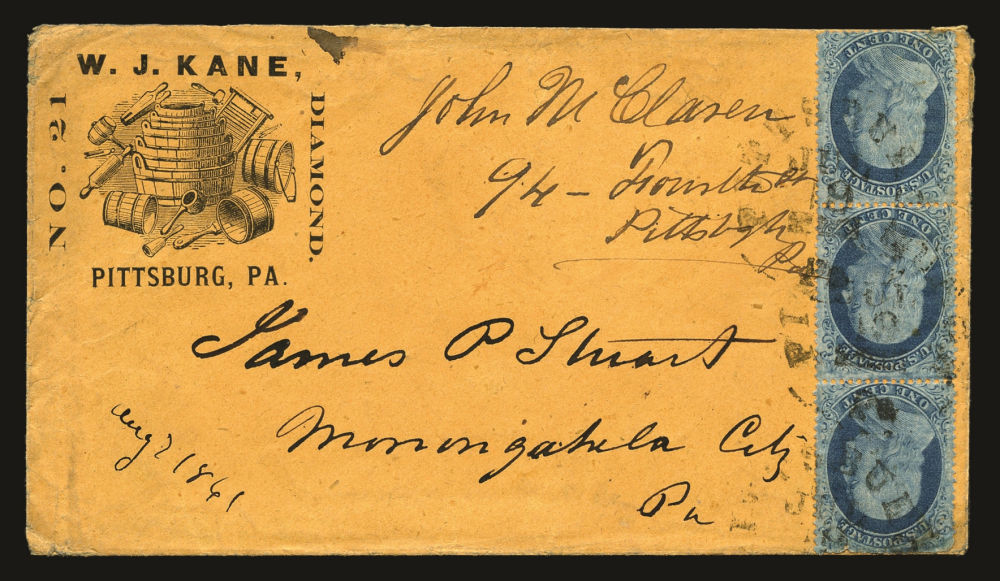 W. J. KANE,
NO. 21
DIAMOND.
PITTSBURG, PA.
John McClaren
94 - Fourth St
Pittsbgh
Pa
James P Stuart
Monongahela City
Pa
Aug 2 1861
ONE CENT
U.S. POSTAGE
ONE CENT
U.S. POSTAGE
ONE CENT
U.S. POSTAGE